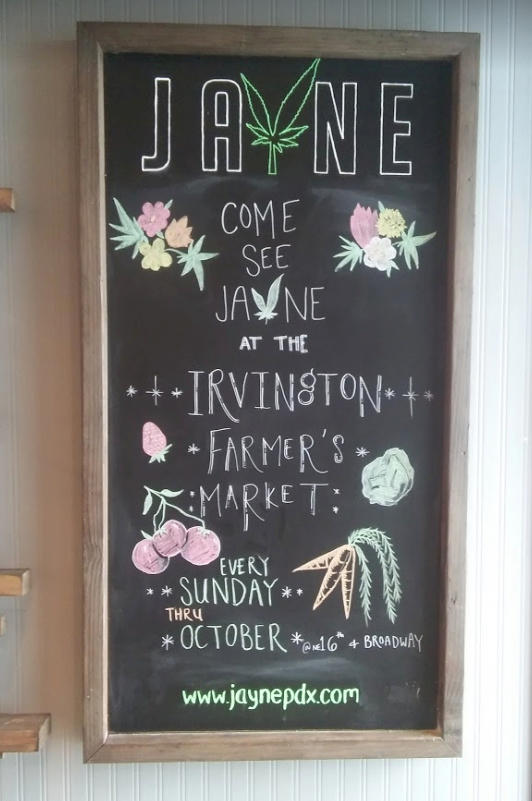 JAYNE
COME
SEE
JAYNE
AT THE
IRVINGTON
FARMER'S
MARKET
EVERY
SUNDAY
THRU
OCTOBER @ NE 16TH + BROADWAY
www.jaynepdx.com